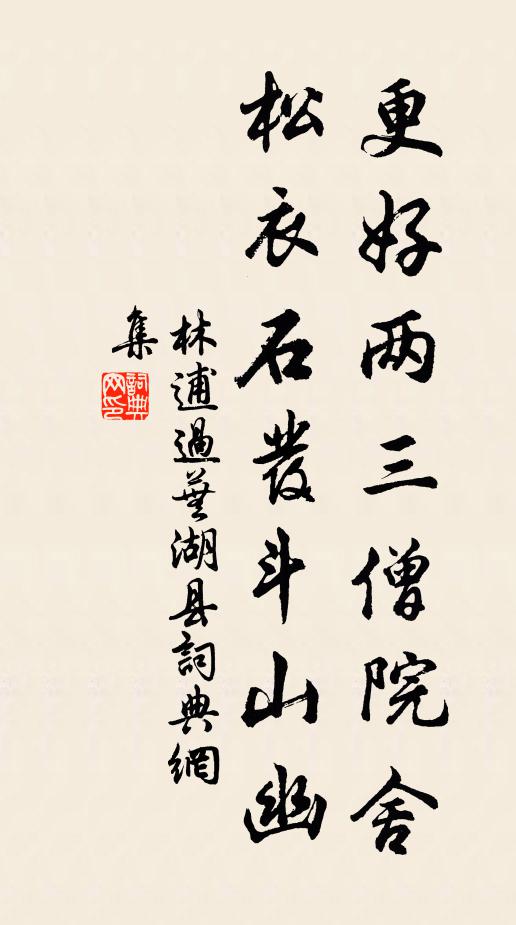 更好两三僧院舍
松衣石發斗山幽
林逋過蕪湖县詞典網
集
詞典
网印